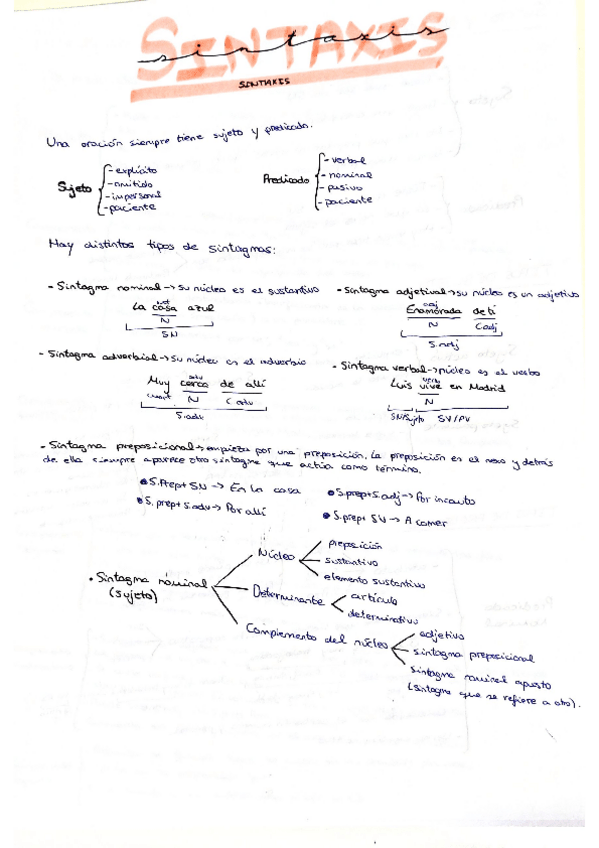 SINTAXIS
sintaxis
SINTAXIS
Una oración siempre tiene sujeto y predicado.
Sujeto
- explícito
- omitido
- impersonal
- paciente
Predicado
- verbal
- nominal
- pasivo
- paciente
Hay distintos tipos de sintagmas:
- Sintagma nominal → su núcleo es el sustantivo
La casa azul
N
SN
- Sintagma adjetival → su núcleo es un adjetivo
adj
Enamorada de ti
N C adj
S. adj
- Sintagma adverbial → su núcleo es el adverbio
adv
Muy cerca de allí
cuant N C adv
S. adv
- Sintagma verbal → núcleo es el verbo
verbo
Luis vive en Madrid
N
SN/Sujeto SV/PV
- Sintagma preposicional → empieza por una preposición. La preposición es el nexo y detrás
de ella siempre aparece otro sintagma que actúa como término.
• S.Prep + SN → En la casa
• S. prep + S. adv → Por allí
• S.prep + S.adj → Por incauto
• S.prep + SV → A comer
• Sintagma nominal
(sujeto)
Núcleo
preposición
sustantivo
elemento sustantivo
Determinante
artículo
determinativo
Complemento del núcleo
adjetivo
sintagma preposicional
sintagma nominal apuesto
(sintagma que se refiere a otro).